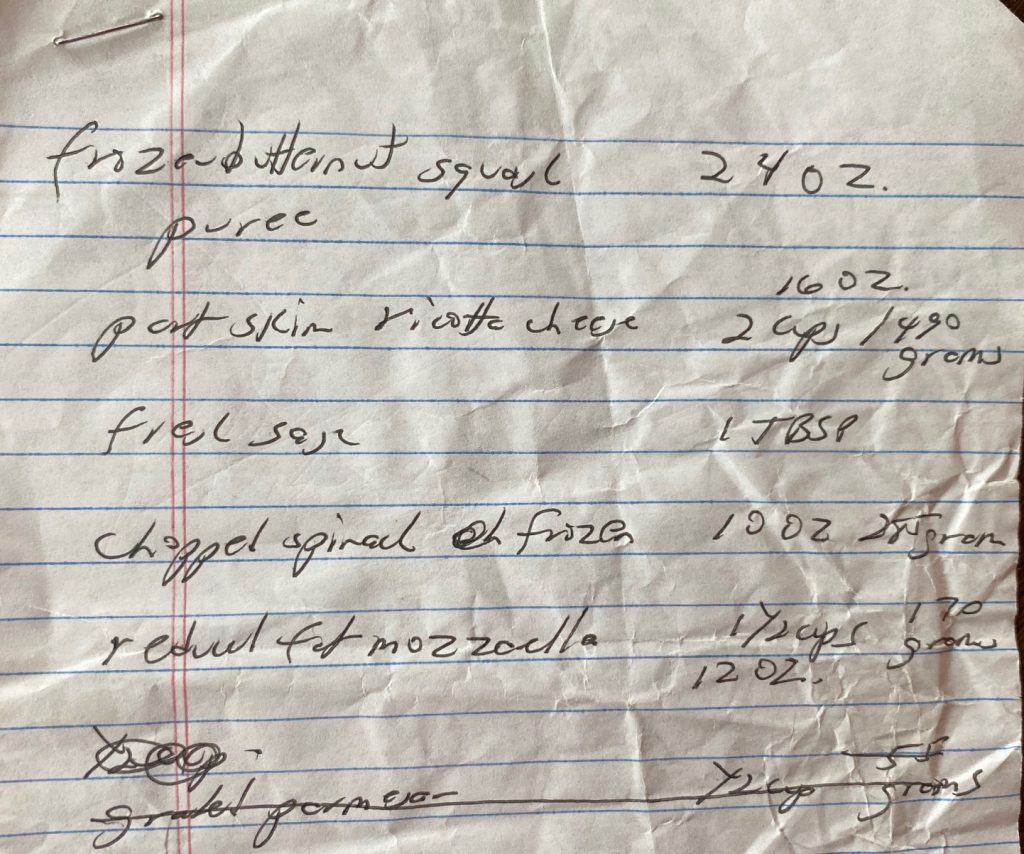 frozen butternut squash 24 OZ.
puree
16 OZ.
part skim ricotta cheese 2 cups / 490
grams
fresh sage 1 TBSP
chopped spinach frozen 10 OZ gram
reduced fat mozzarella 1 1/2 cups 170
grams
12 OZ.
55
grated parmesan 1/2 cup grams